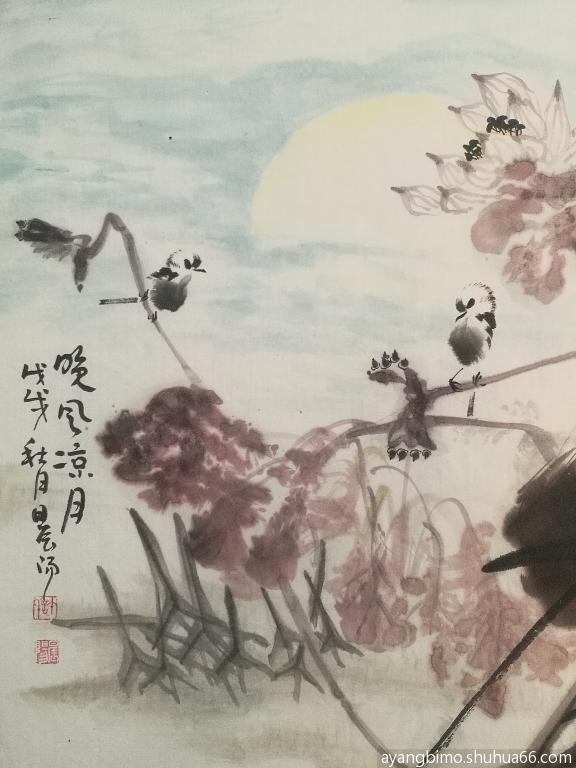 晚风凉月
戊戌秋月晨阳
ayangbimo.shuhua66.com